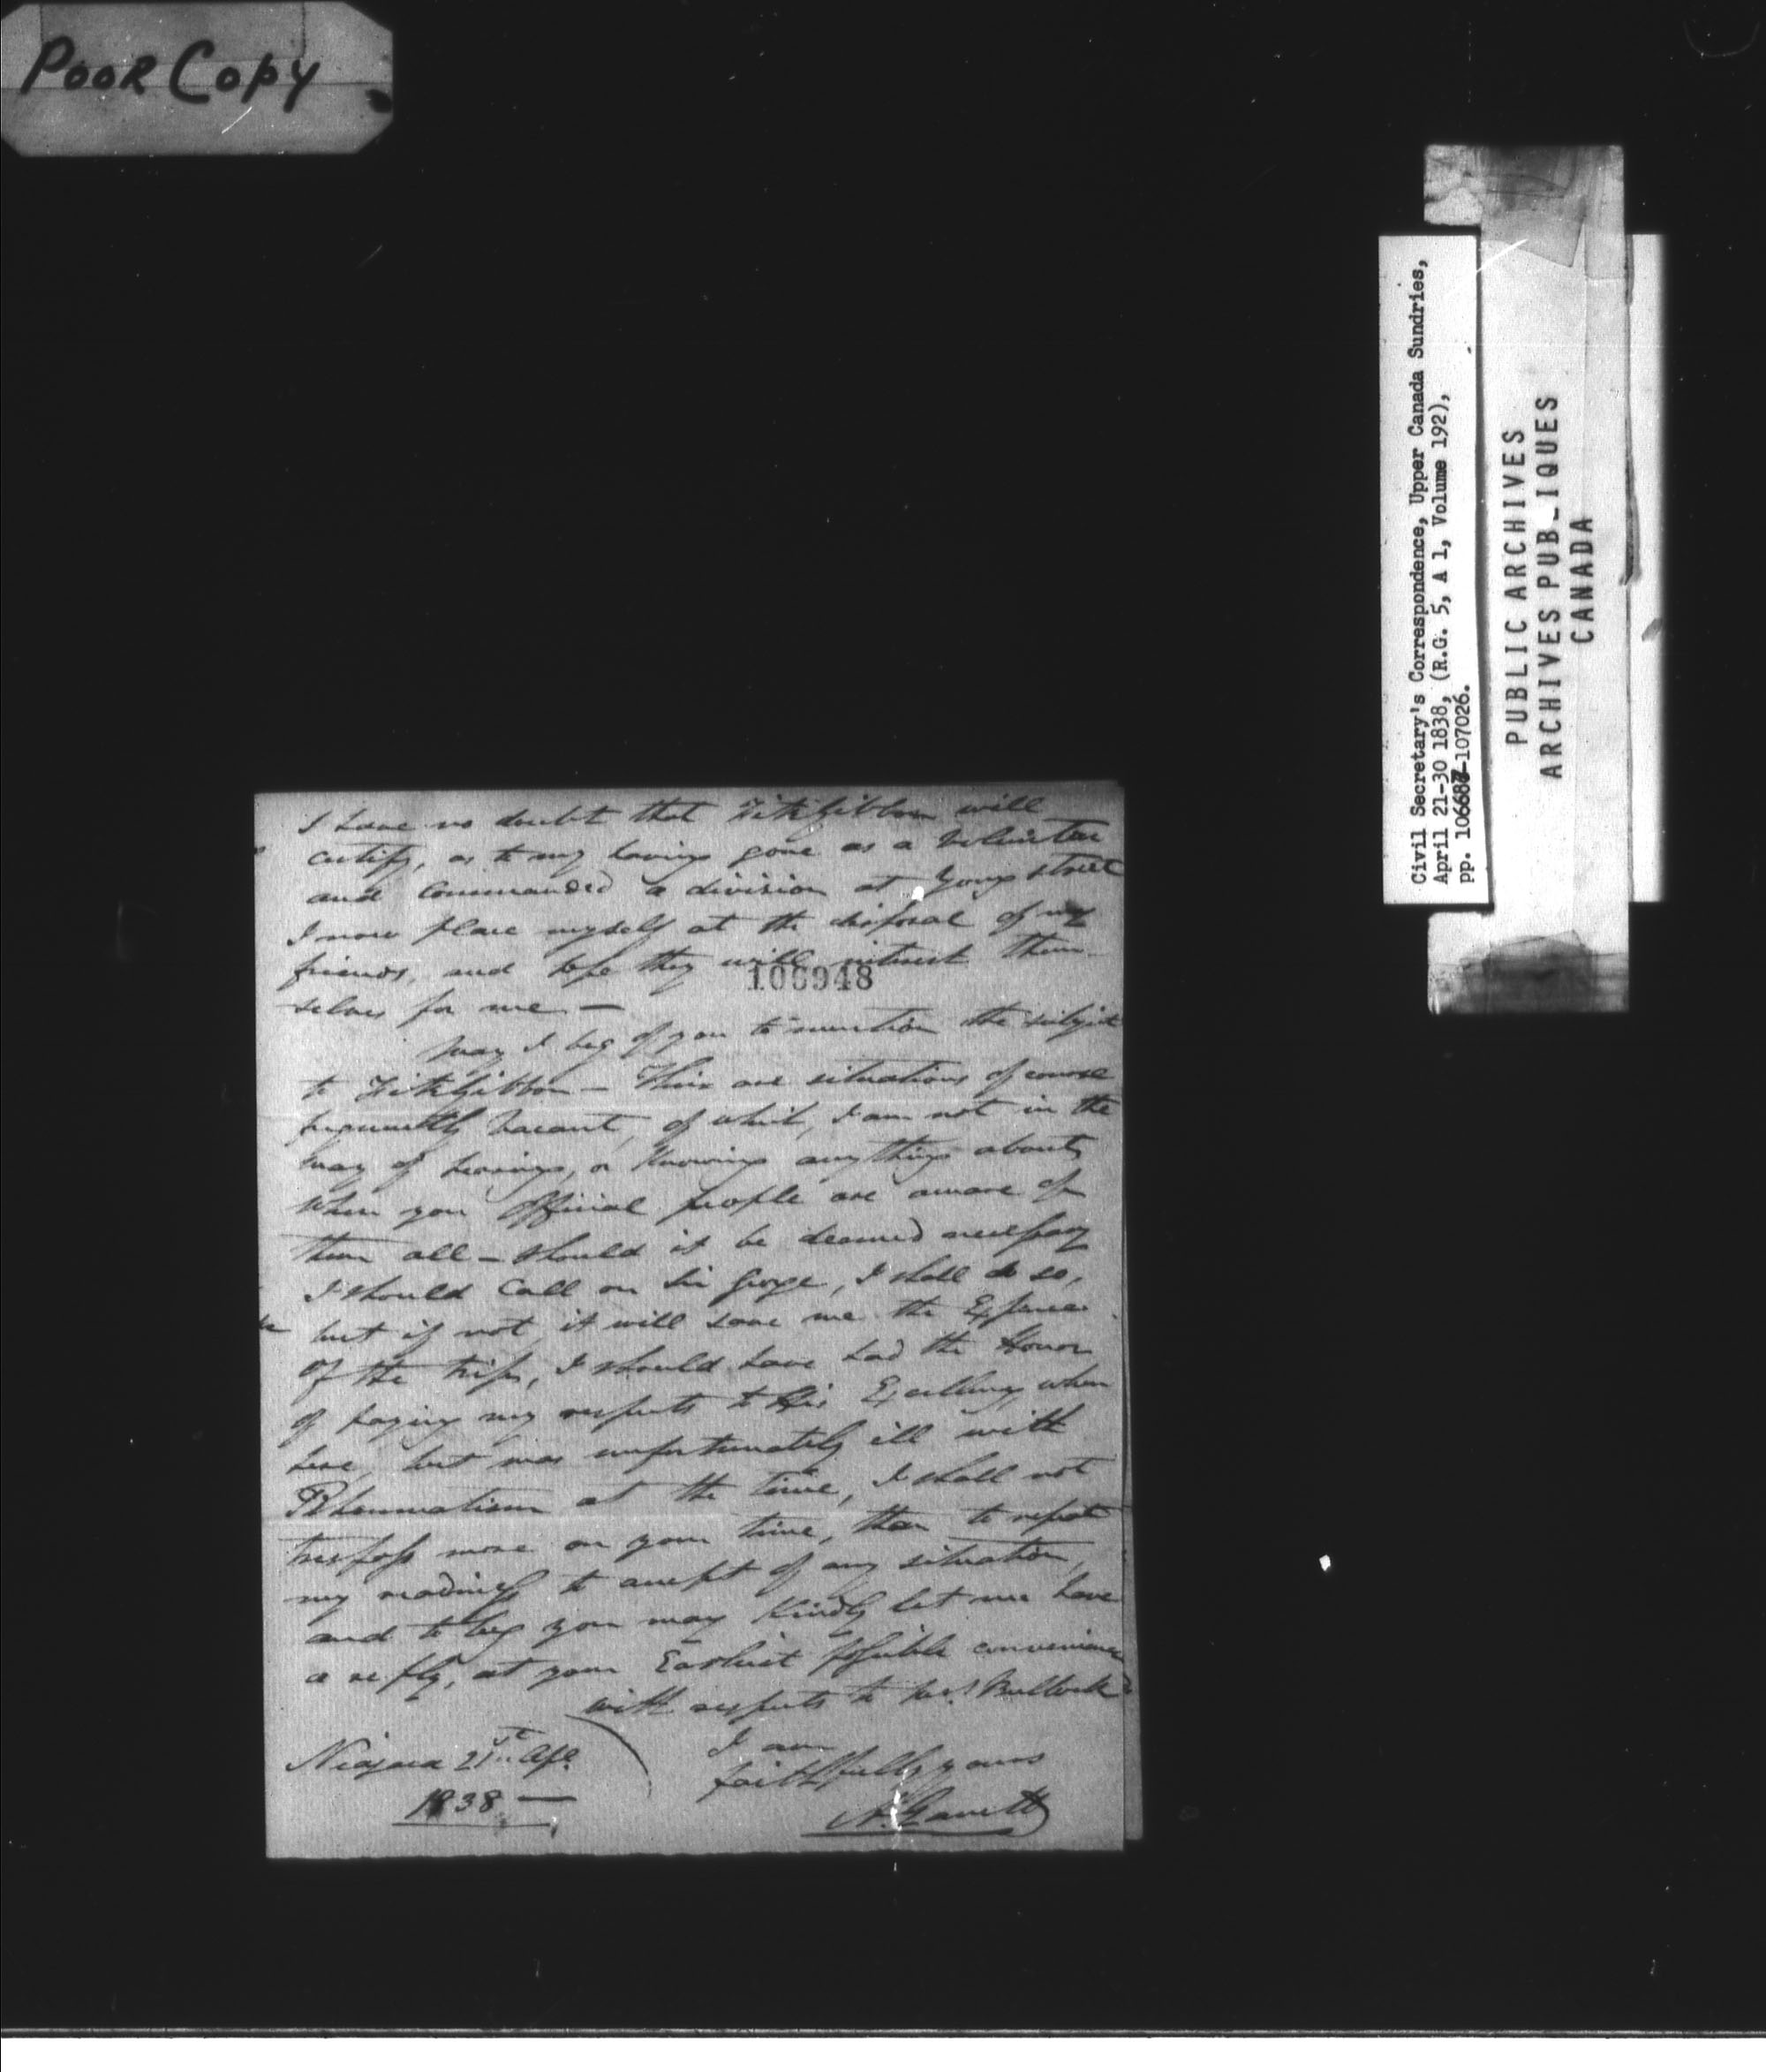 Poor Copy
I have no doubt that FitzGibbon will
certify, as to my having gone as a Volunteer
and Commanded a division at Yonge Street
I now place myself at the disposal of my
friends, and hope they will interest them-
106948
selves for me —
May I beg of you to mention the subject
to FitzGibbon — There are situations of course
frequently Vacant, of which, I am not in the
way of hearing, or Knowing any thing about,
When you Official people are aware of
them all — Should it be deemed necessary
I should Call on Sir George, I shall do so,
but if not, it will save me the Expense
of the trip, I should have had the Honor
of paying my respects to His Excellency, when
here, but was unfortunately ill with
Rheumatism at the time, I shall not
trespass more on your time, than to repeat
my readiness to accept of any situation,
and to beg you may Kindly let me have
a reply, at your Earliest possible convenience
with respects to Mrs. Bullock
I am
faithfully yours
Niagara 21st Apl.
1838 —
A. Garrett
Civil Secretary's Correspondence, Upper Canada Sundries,
April 21-30 1838, (R.G. 5, A 1, Volume 192),
pp. 106687-107026.
PUBLIC ARCHIVES
ARCHIVES PUBLIQUES
CANADA